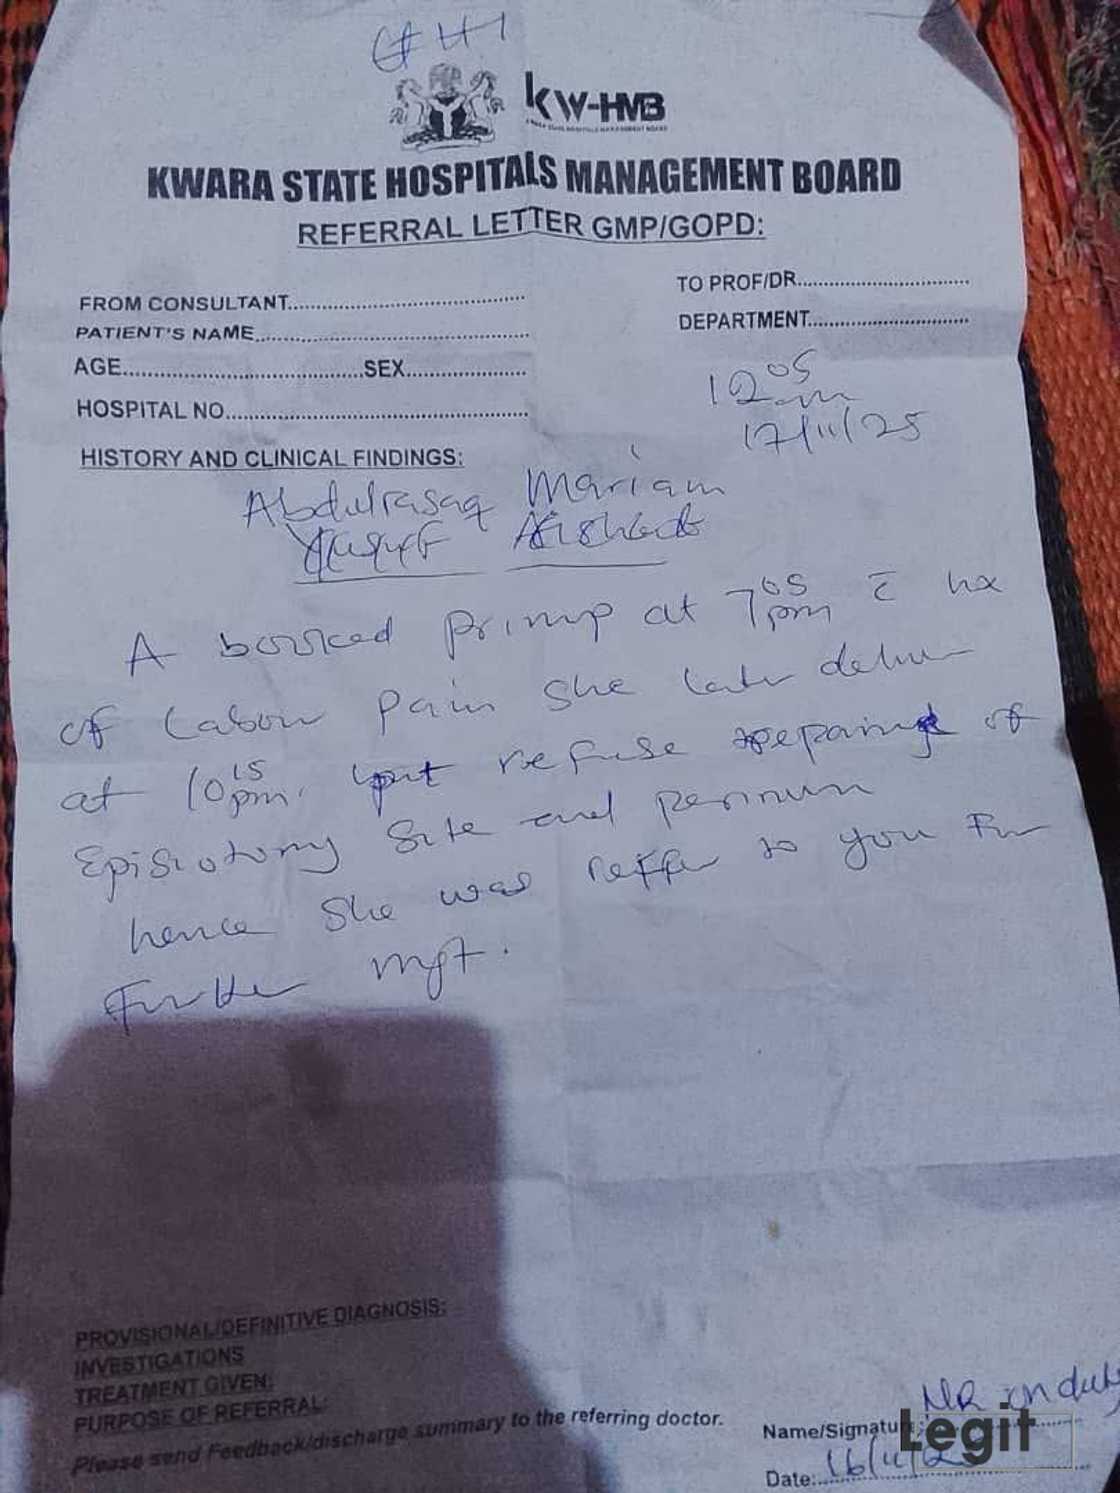 GHI
KW-HMB
KWARA STATE HOSPITALS MANAGEMENT BOARD
KWARA STATE HOSPITALS MANAGEMENT BOARD
REFERRAL LETTER GMP/GOPD:
FROM CONSULTANT
TO PROF/DR
PATIENT'S NAME
DEPARTMENT
AGE SEX
HOSPITAL NO
12 05 am
17/11/25
HISTORY AND CLINICAL FINDINGS:
Abdulrasaq Mariam
Yusuf Aishat
A booked primip at 7 05 pm c hx
of labour pain she later deliver
at 10 15 pm. but refuse repairing of
Episiotomy site and perinum
hence she was reffer to you for
Further mgt.
PROVISIONAL/DEFINITIVE DIAGNOSIS:
INVESTIGATIONS
TREATMENT GIVEN:
PURPOSE OF REFERRAL:
Please send Feedback/discharge summary to the referring doctor.
NR on duty
Name/Signature
Legit
Date: 16/11/25